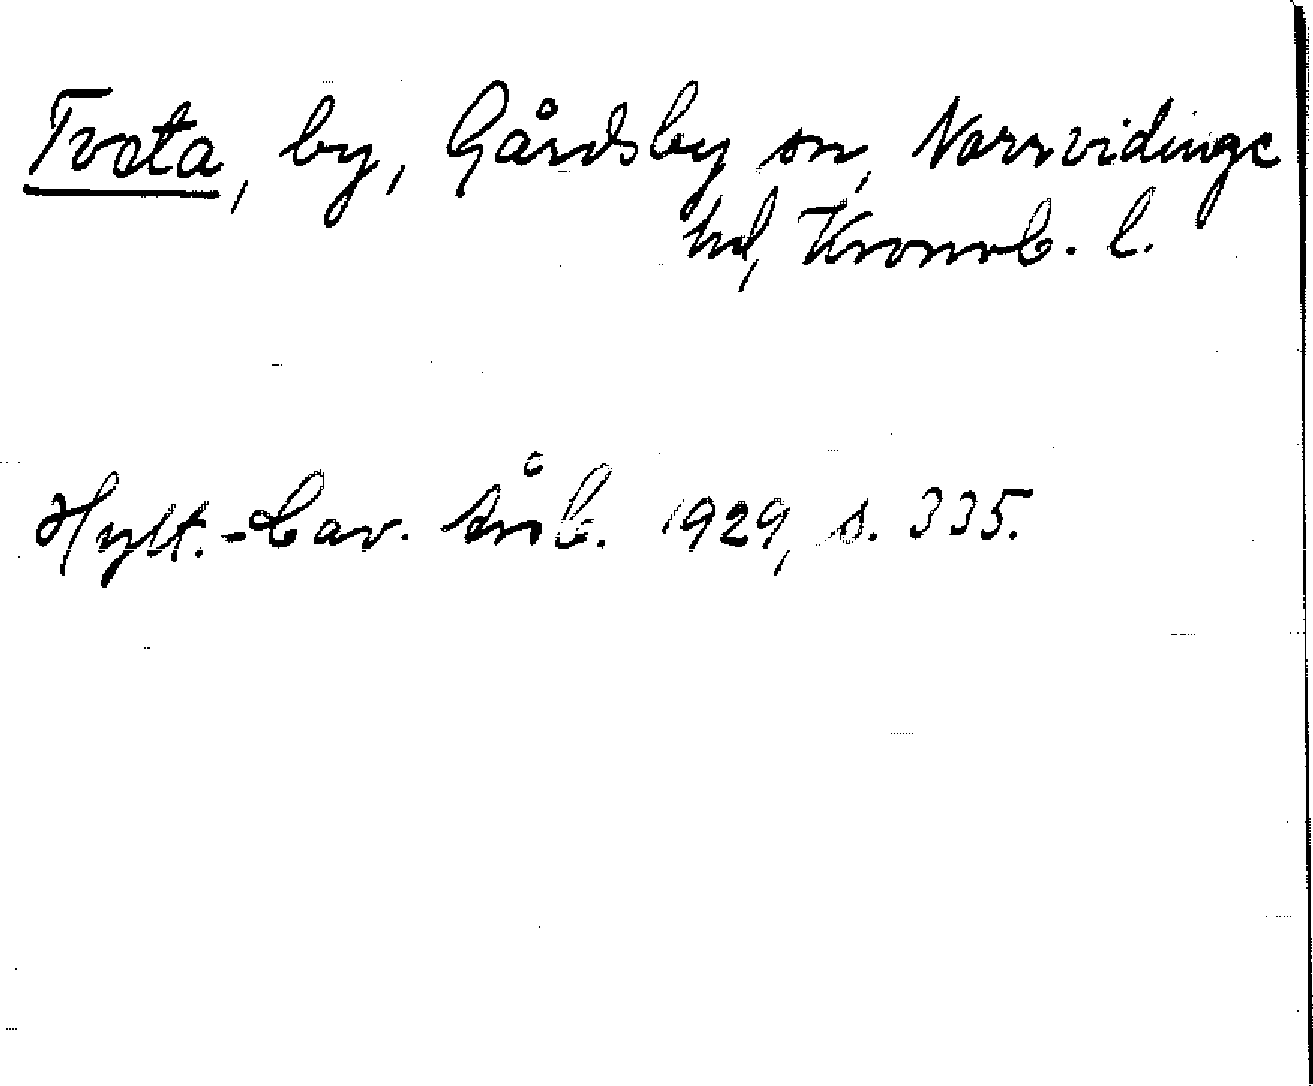 Tvæta, by, Gårdsby sn, Norrvidinge
hd, Kronob. l.
Hylt.-Cav. årsb. 1929, s. 335.